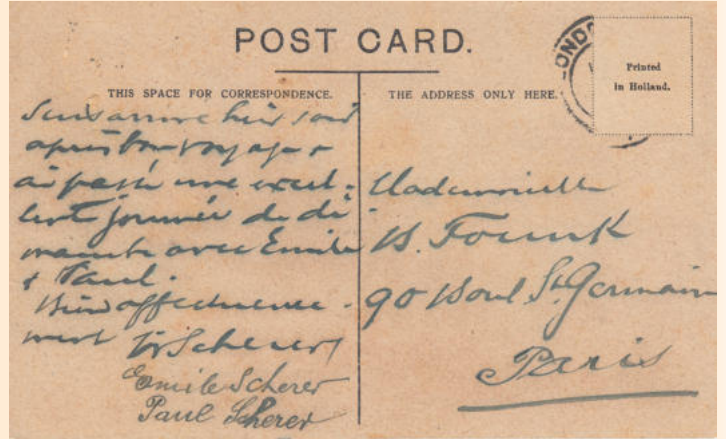 POST CARD.
THIS SPACE FOR CORRESPONDENCE.
THE ADDRESS ONLY HERE.
LONDO
Printed
in Holland.
Suis arrivé hier soir
après bon voyage &
ai passé une excel-
lente journée de di
manche avec Emile
& Paul.
Bien affectueuse-
ment Scherer
Emile Scherer
Paul Scherer
Mademoiselle
B. Founk
90 Boul St. Germain
Paris